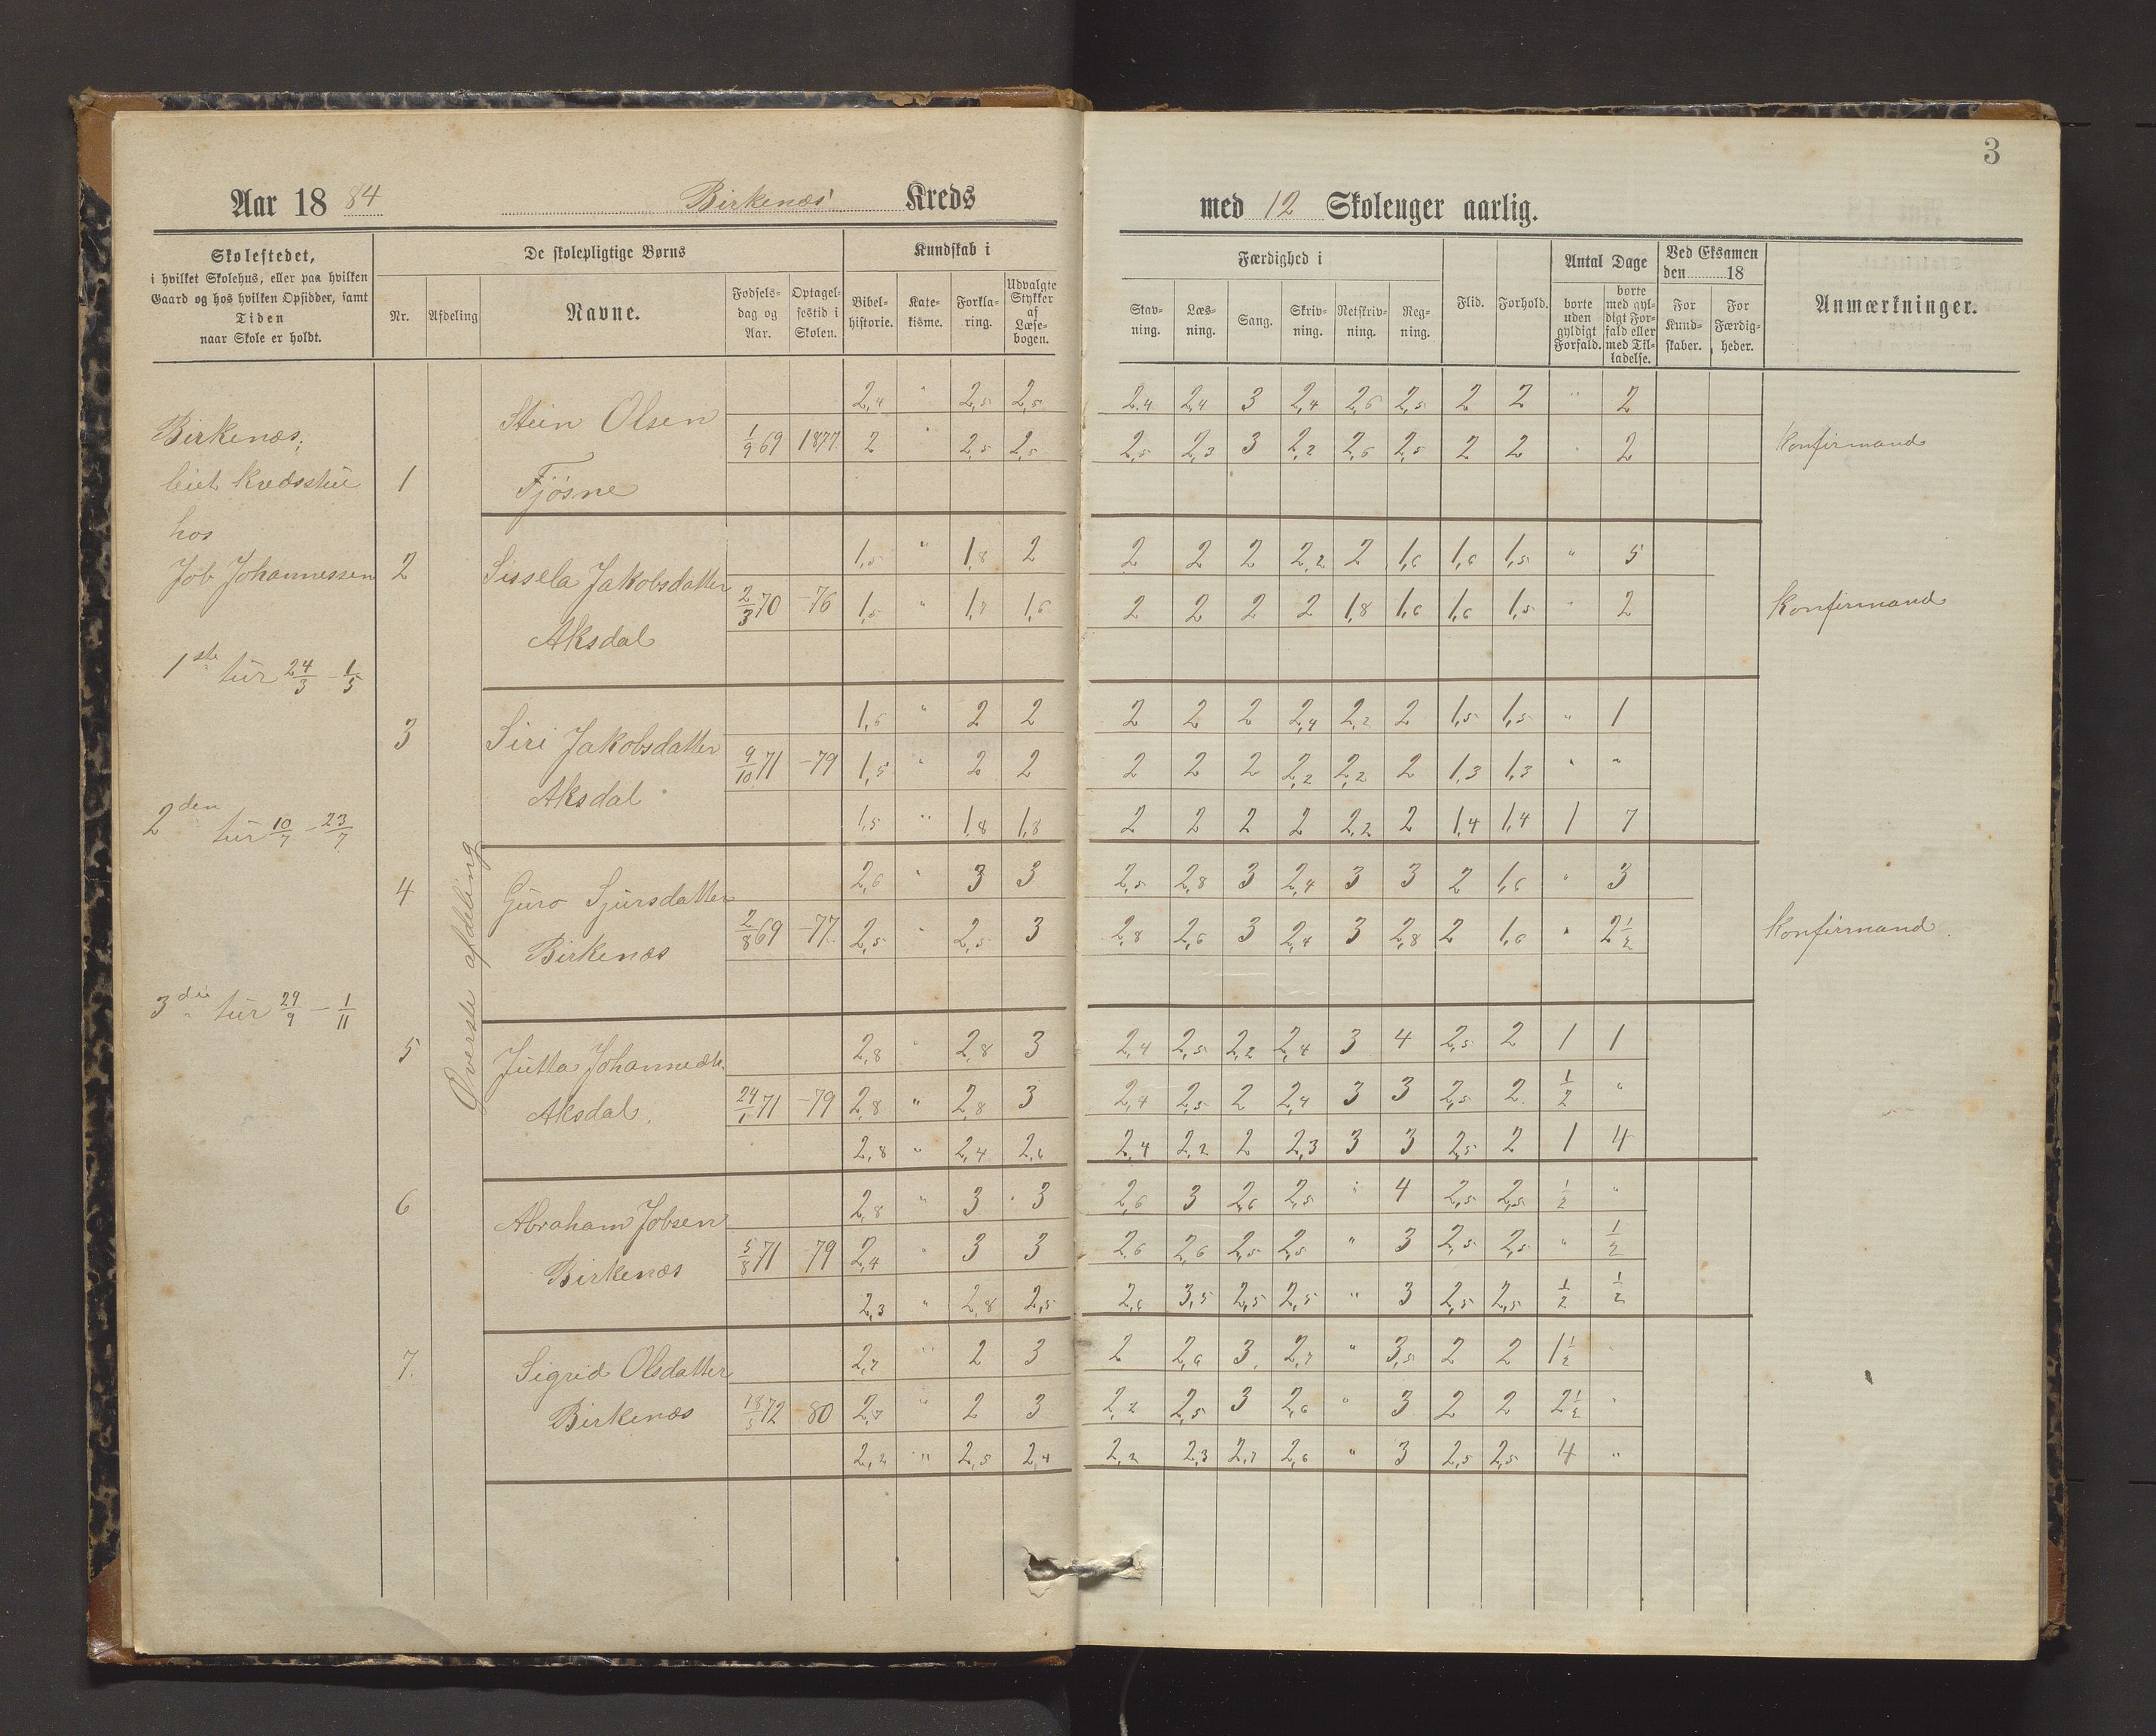 3
Aar 18 84 Birkenæs Kreds
med 12 Skoleuger aarlig.
Skolestedet,
i hvilket Skolehus, eller paa hvilken
Gaard og hos hvilken Opsidder, samt
Tiden
naar Skole er holdt.
De skolepligtige Børns
Nr.
Afdeling
Navne.
Fødsels-
dag og
Aar.
Optagel-
sestid i
Skolen.
Kundskab i
Bibel-
historie.
Kate-
kisme.
Forkla-
ring.
Udvalgte
Stykker
af
Læse-
bogen.
Færdighed i
Stav-
ning.
Læs-
ning.
Sang.
Skriv-
ning.
Retskriv-
ning.
Reg-
ning.
Flid.
Forhold.
Antal Dage
borte
uden
gyldigt
Forfald.
borte
med gyl-
digt For-
fald eller
med Til-
ladelse.
Ved Eksamen
den 18
For
Kund-
skaber.
For
Færdig-
heder.
Anmærkninger.
Birkenæs,
leiet kredsstue
hos
Job Johannessen
1ste tur 24/3 - 1/5
2den tur 10/7 - 23/7
3die tur 29/9 - 1/11
Øverste afdeling
1 Stein Olsen
Fjøsne
1/9 69 1877
2,4 " 2,5 2,5 2,4 2,4 3 2,4 2,6 2,5 2 2 " 2
2 " 2,5 2,5 2,5 2,3 3 2,2 2,6 2,5 2 2 " 2 Konfirmand
2 Sissela Jakobsdatter
Aksdal
2/3 70 -76
1,5 " 1,8 2 2 2 2 2,2 2 1,6 1,6 1,5 " 5
1,5 " 1,7 1,6 2 2 2 2 1,8 1,6 1,6 1,5 " 2 Konfirmand
3 Siri Jakobsdatter
Aksdal
9/10 71 -79
1,6 " 2 2 2 2 2 2,4 2,2 2 1,5 1,5 " 1
1,5 " 2 2 2 2 2 2,2 2,2 2 1,3 1,3 " "
1,5 " 1,8 1,8 2 2 2 2 2,2 2 1,4 1,4 1 7
4 Guro Sjursdatter
Birkenæs
2/8 69 -77
2,6 " 3 3 2,5 2,8 3 2,4 3 3 2 1,6 " 3
2,5 " 2,5 3 2,8 2,6 3 2,4 3 2,8 2 1,6 " 2 1/2 Konfirmand.
5 Jutta Johannedtr.
Aksdal.
24/1 71 -79
2,8 " 2,8 3 2,4 2,5 2,2 2,4 3 4 2,5 2 1 1
2,8 " 2,8 3 2,4 2,5 2 2,4 3 3 2,5 2 1/2 "
2,8 " 2,4 2,6 2,4 2,2 2 2,3 3 3 2,5 2 1 4
6 Abraham Jobsen
Birkenæs
5/8 71 79
2,8 " 3 3 2,6 3 2,6 2,5 " 4 2,5 2,5 1/2 "
2,4 " 3 3 2,6 2,6 2,5 2,5 " 3 2,5 2,5 " 1/2
2,3 " 2,8 2,5 2,6 3,5 2,5 2,5 " 3 2,5 2,5 1/2 1/2
7. Sigrid Olsdatter
Birkenæs
18/5 72 80
2,7 " 2 3 2 2,6 3 2,7 " 3,5 2 2 1 1/2 "
2,7 " 2 3 2,2 2,5 3 2,6 " 3 2 2 2 1/2 "
2,2 " 2,5 2,4 2,2 2,3 2,7 2,6 " 3 2,5 2,5 4 "